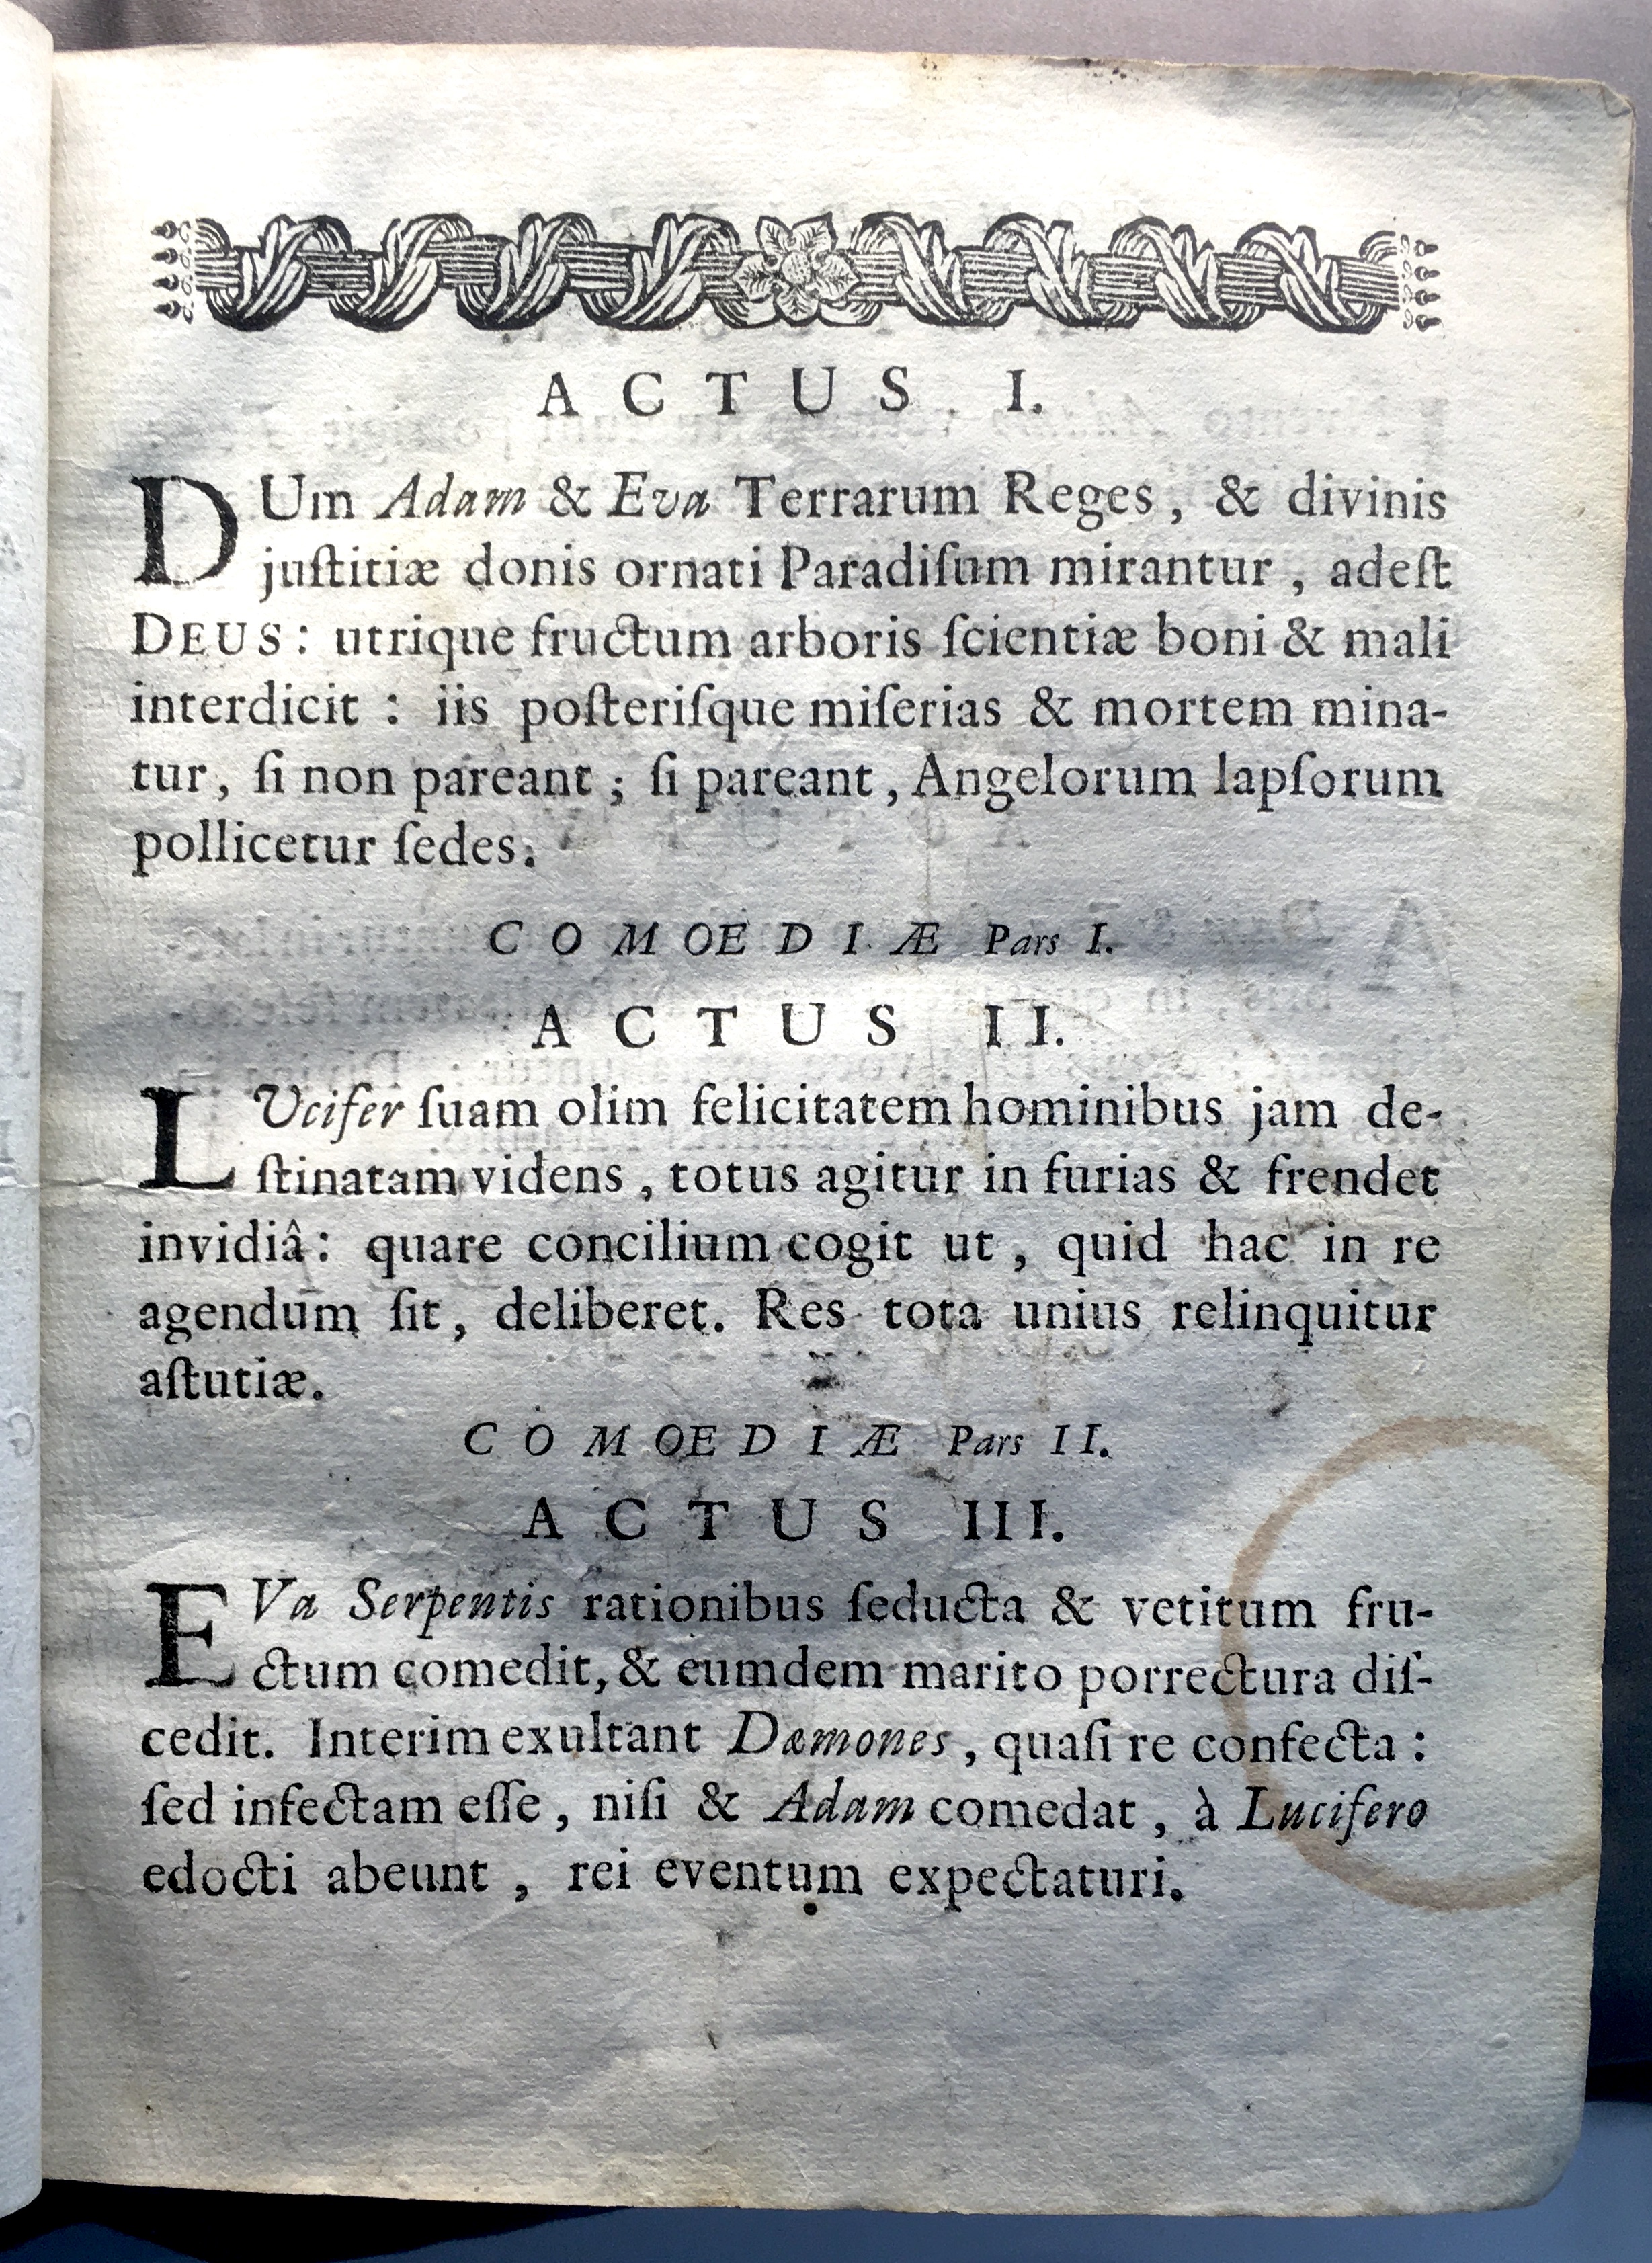 ACTUS I.
DUm Adam & Eva Terrarum Reges, & divinis
juſtitiæ donis ornati Paradiſum mirantur, adeſt
DEUS: utrique fructum arboris ſcientiæ boni & mali
interdicit : iis poſteriſque miſerias & mortem mina-
tur, ſi non pareant; ſi pareant, Angelorum lapſorum
pollicetur ſedes.
COMOEDIÆ Pars I.
ACTUS II.
LUcifer ſuam olim felicitatem hominibus jam de-
ſtinatam videns, totus agitur in furias & frendet
invidiâ: quare concilium cogit ut, quid hac in re
agendum ſit, deliberet. Res tota unius relinquitur
aſtutiæ.
COMOEDIÆ Pars II.
ACTUS III.
EVa Serpentis rationibus ſeducta & vetitum fru-
ctum comedit, & eumdem marito porrectura diſ-
cedit. Interim exultant Dæmones, quaſi re confecta :
ſed infectam eſſe, niſi & Adam comedat, à Lucifero
edocti abeunt, rei eventum expectaturi.